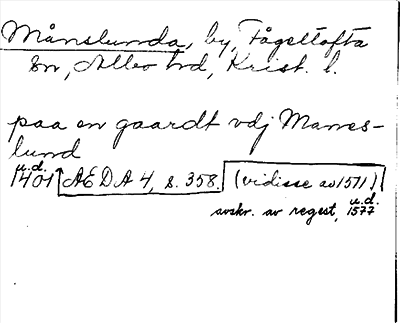 Månslunda, by, Fågeltofta
sn, Albo hd, Krist. l.
paa en gaardt vdj Manss-
lund
u.d.
1401 ÆDA 4, s. 358. (vidisse av 1511)
avskr. av regest, u.d. 1577